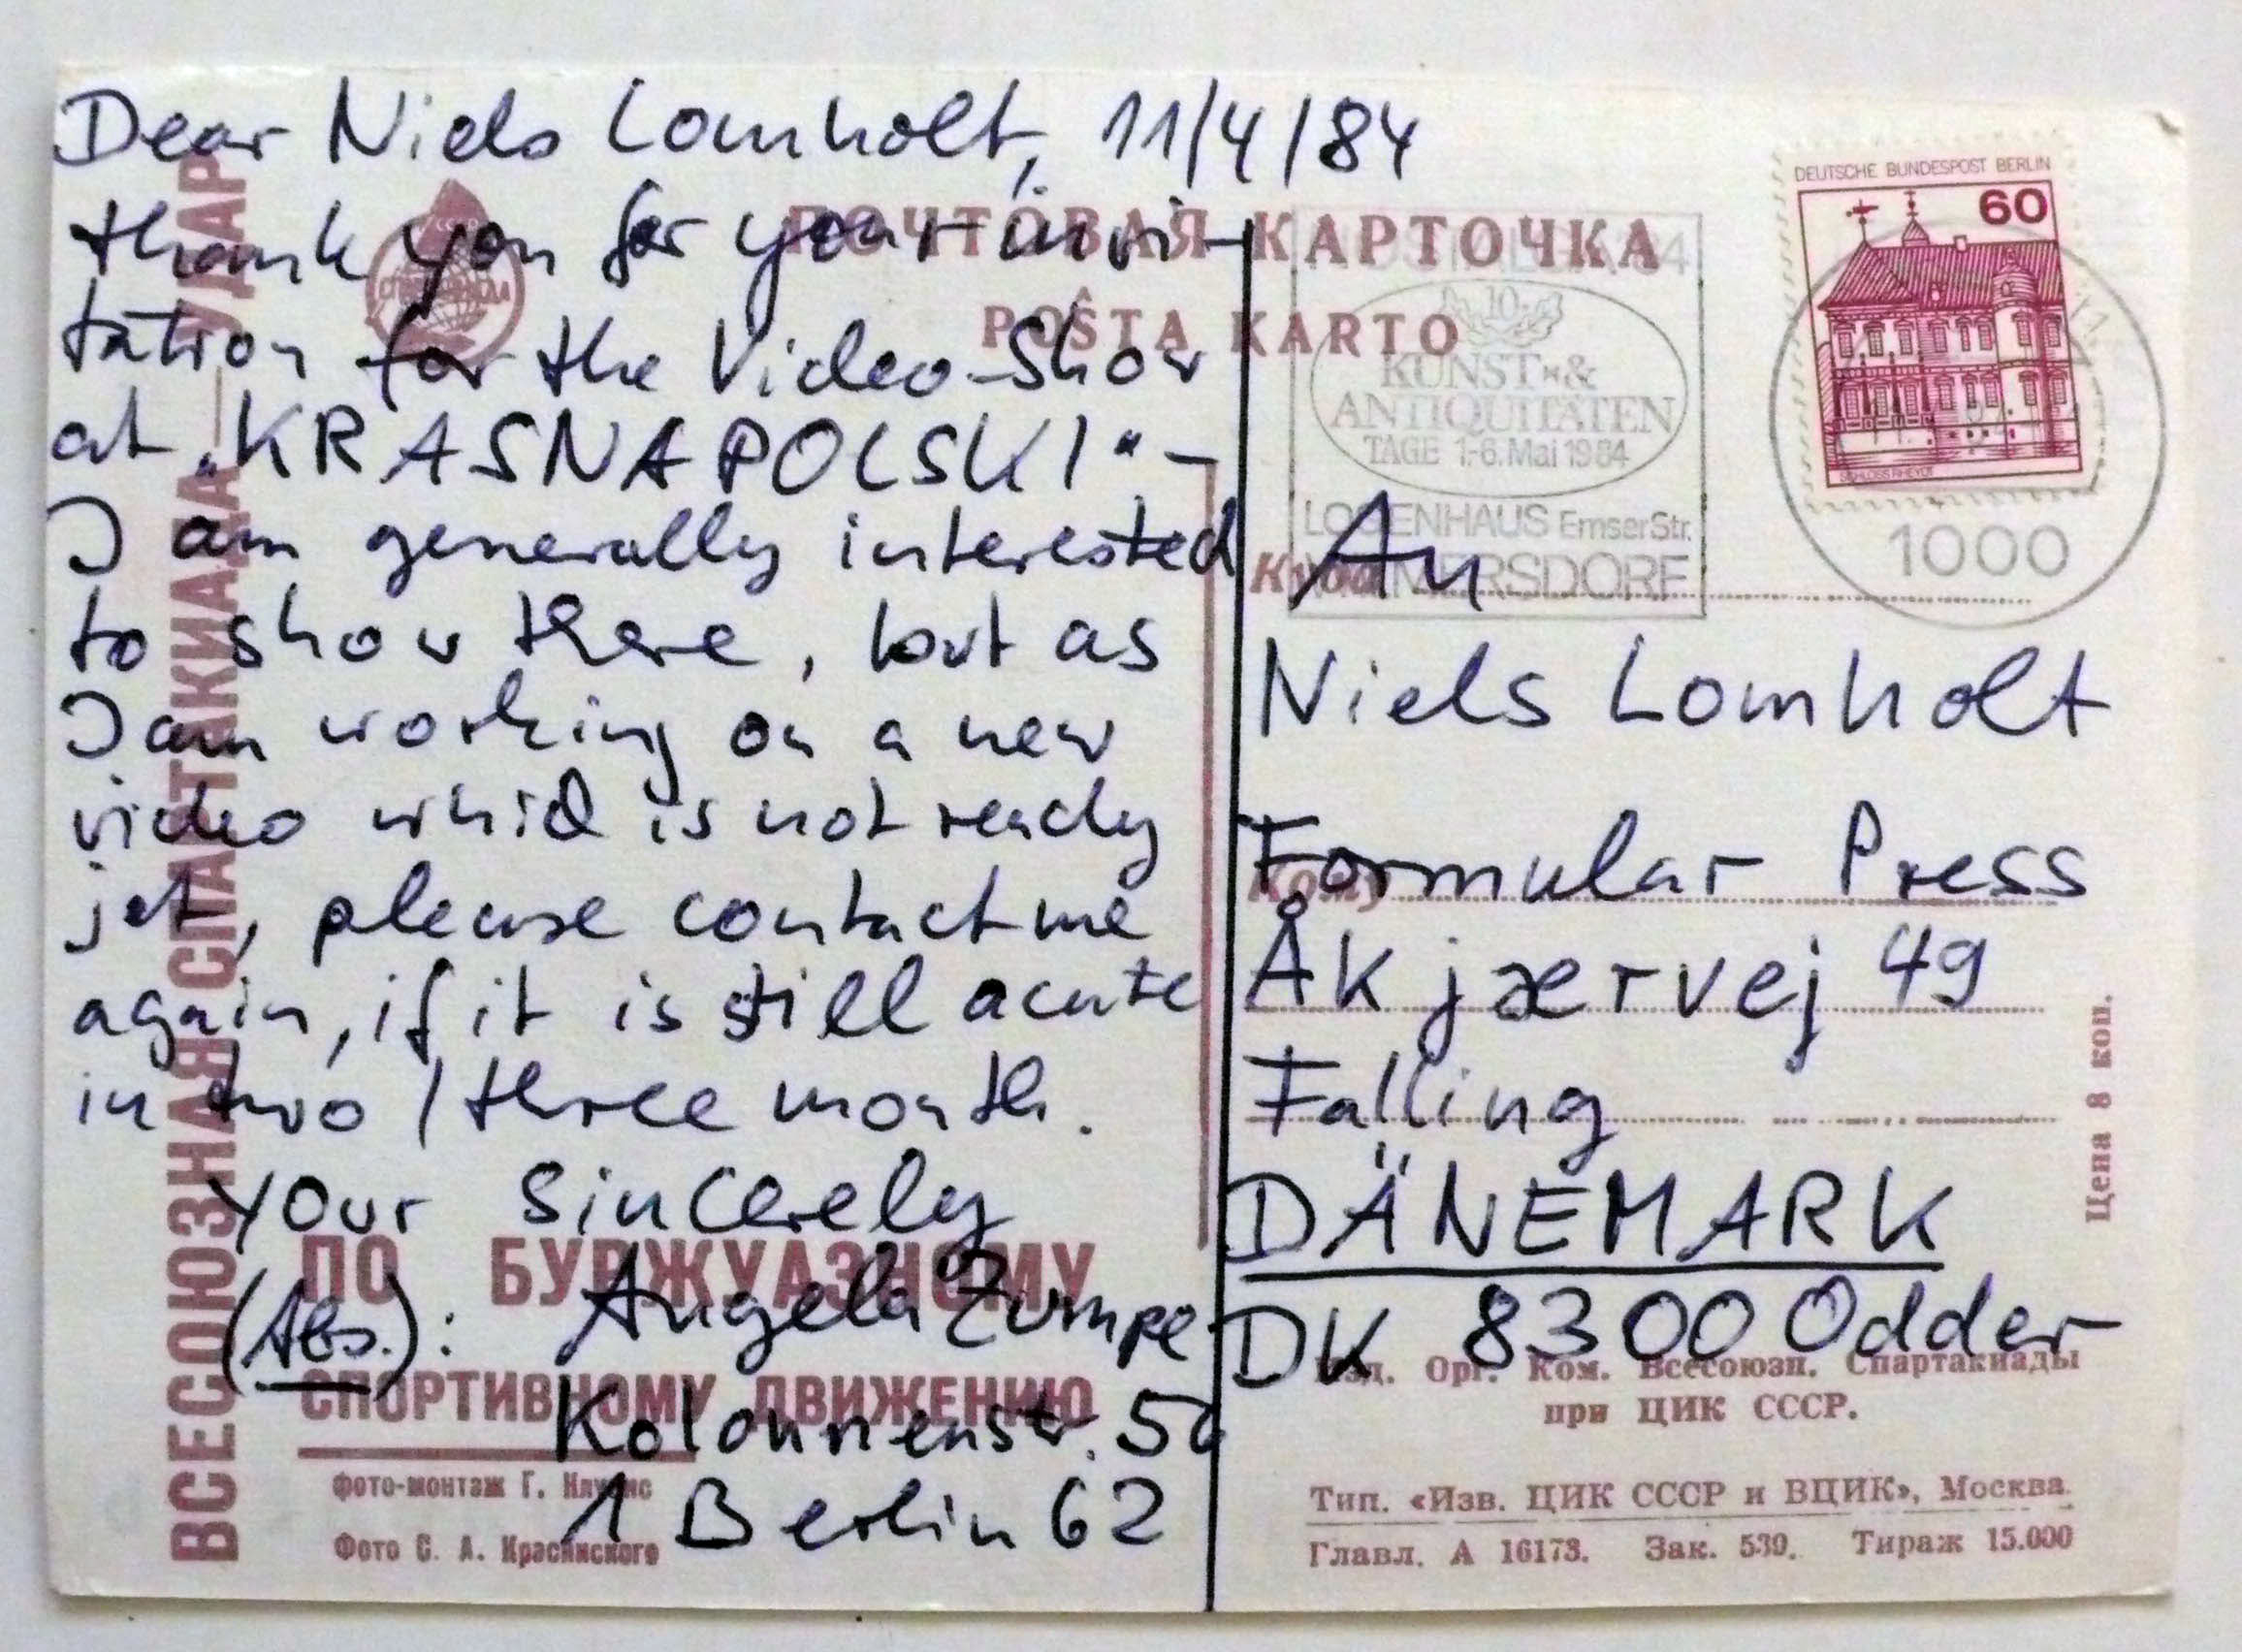 Dear Niels Lomholt, 11/4/84
thank you for your invi-
tation for the Video-Show
at „KRASNAPOLSKI“ -
I am generally interested
to show there, but as
I am working on a new
video which is not ready
jet, please contact me
again, if it is still acute
in two / three month.
your sincerely
(Abs.): Angela Zumpe
Kolonnenstr. 50
1 Berlin 62
ВСЕСОЮЗНАЯ СПАРТАКИАДА — УДАР
ПО БУРЖУАЗНОМУ
СПОРТИВНОМУ ДВИЖЕНИЮ
фото-монтаж Г. Клуцис
Фото С. А. Красинского
ПОЧТОВАЯ КАРТОЧКА
POŜTA KARTO
DEUTSCHE BUNDESPOST BERLIN
60
SCHLOSS RHEYDT
10.
KUNST- &
ANTIQUITÄTEN
TAGE 1.-6. Mai 1984
LOGENHAUS Emser Str.
WILMERSDORF
1000
Куда
An
Niels Lomholt
Кому
Formular Press
Åkjærvej 49
Falling
DÄNEMARK
DK 8300 Odder
Цена 8 коп.
Изд. Орг. Ком. Всесоюзн. Спартакиады
при ЦИК СССР.
Тип. «Изв. ЦИК СССР и ВЦИК», Москва.
Главл. А 16173. Зак. 539. Тираж 15.000